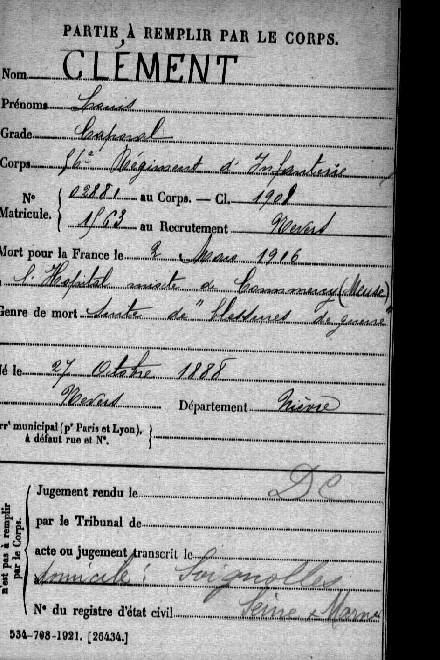 PARTIE À REMPLIR PAR LE CORPS.
Nom CLÉMENT
Prénoms Louis
Grade Caporal
Corps 56e Régiment d'Infanterie
N° Matricule. { 02881 au Corps. — Cl. 1908
1563 au Recrutement Nevers
Mort pour la France le 2 Mars 1916
l'Hôpital mixte de Commercy (Meuse)
Genre de mort Suite de "blessures de guerre"
Né le 27 Octobre 1888
Nevers Département Nièvre
arrt municipal (pr Paris et Lyon), à défaut rue et N°.
n'est pas à remplir par le Corps.
Jugement rendu le DC
par le Tribunal de
acte ou jugement transcrit le
domicile : Soignolles
N° du registre d'état civil Seine & Marne
534-708-1921. [26434.]